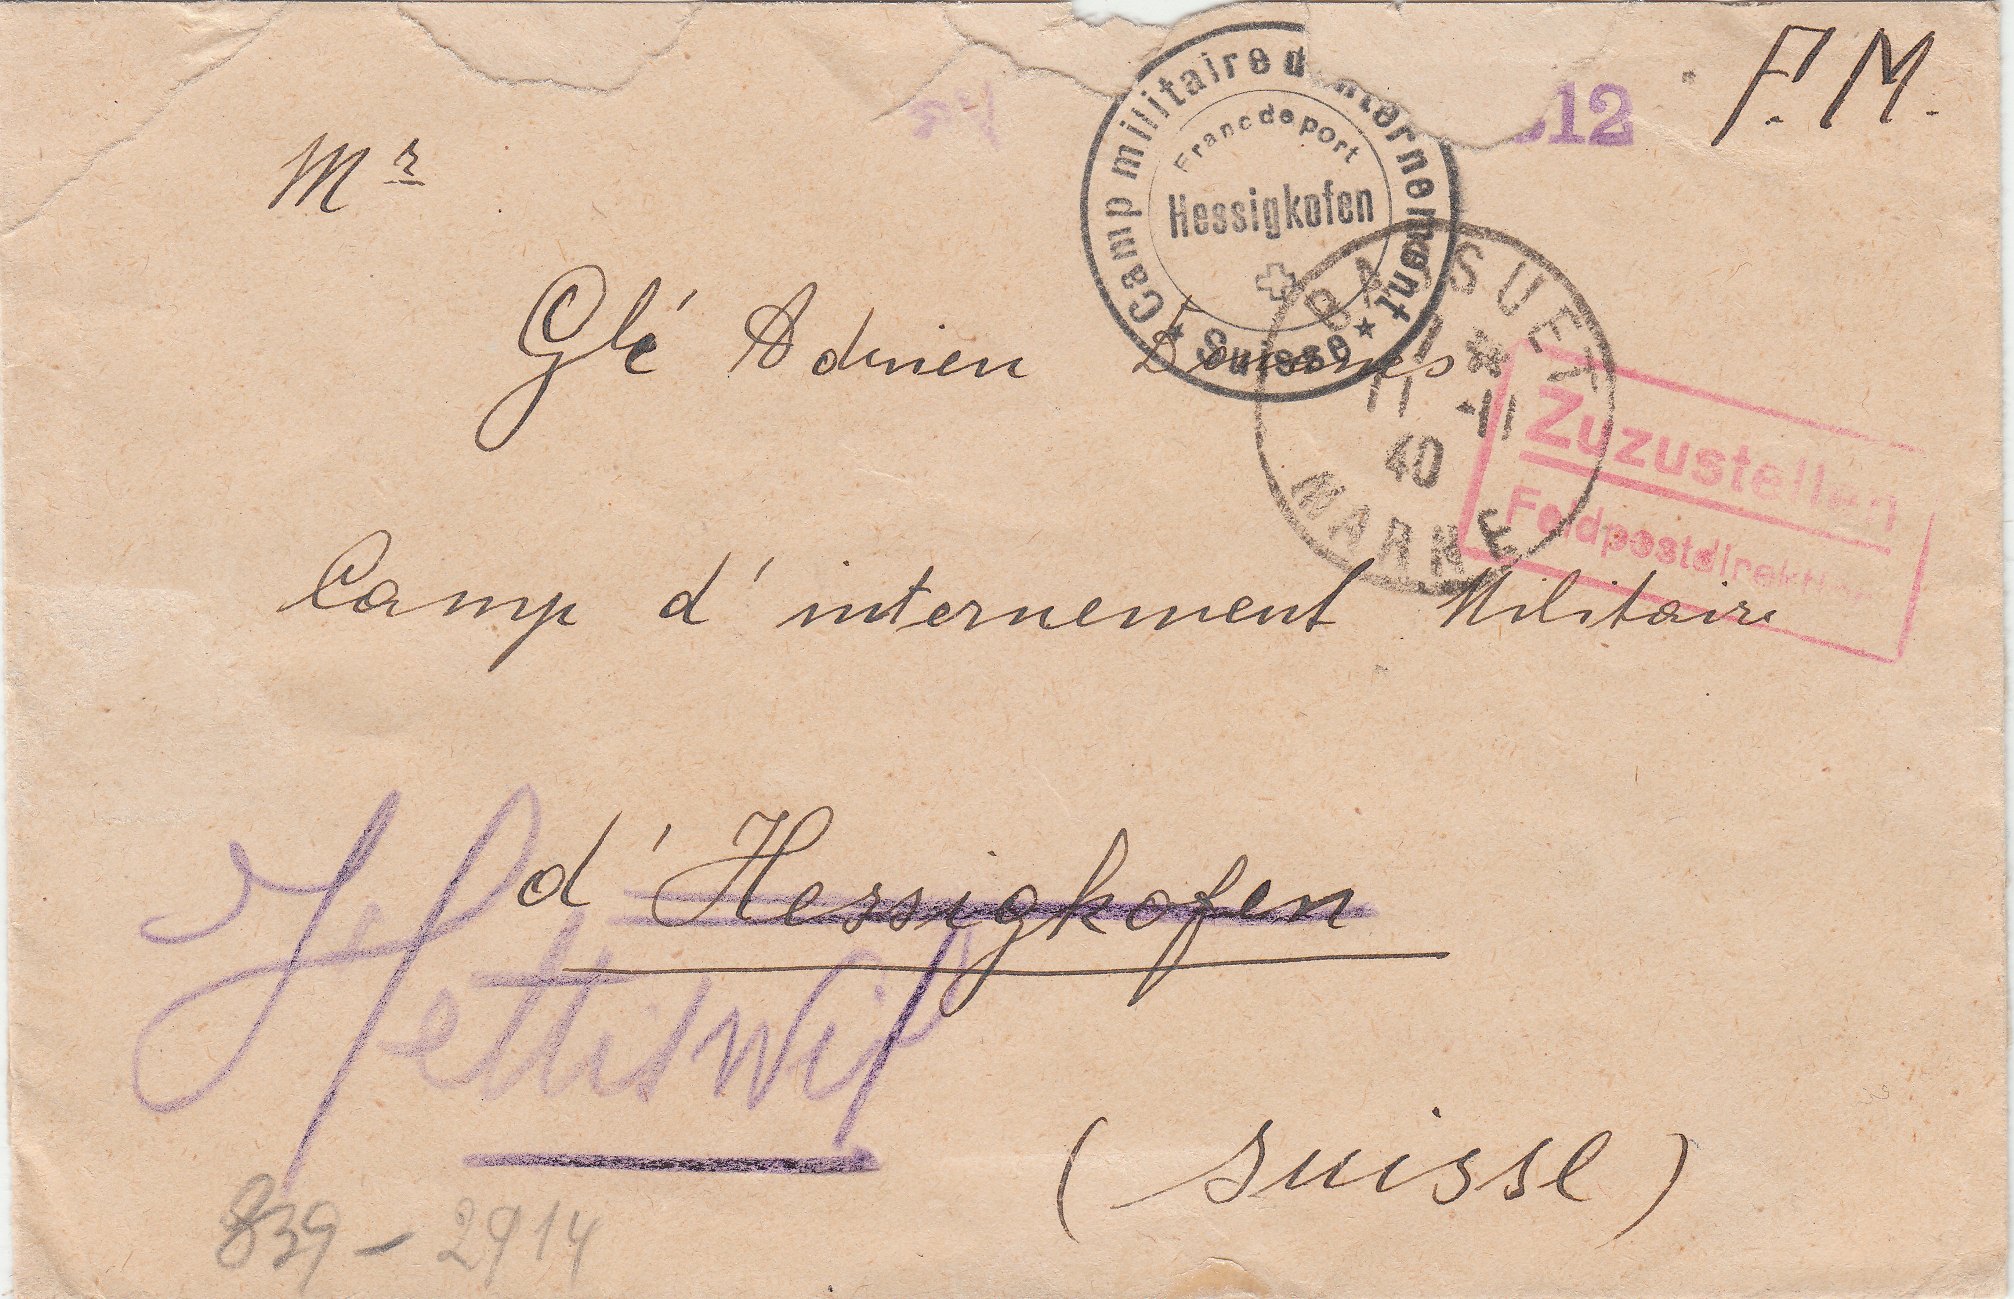 F. M.
Camp militaire d'internement
Franc de port
Hessigkofen
* Suisse *
12
Mr
Glé Adrien
BASSUET
11 -11
40
MARNE
Zuzustellen
Feldpostdirektion
Camp d'internement Militaire
d'Hessigkofen
Hettiswil
(suisse)
839 - 2914